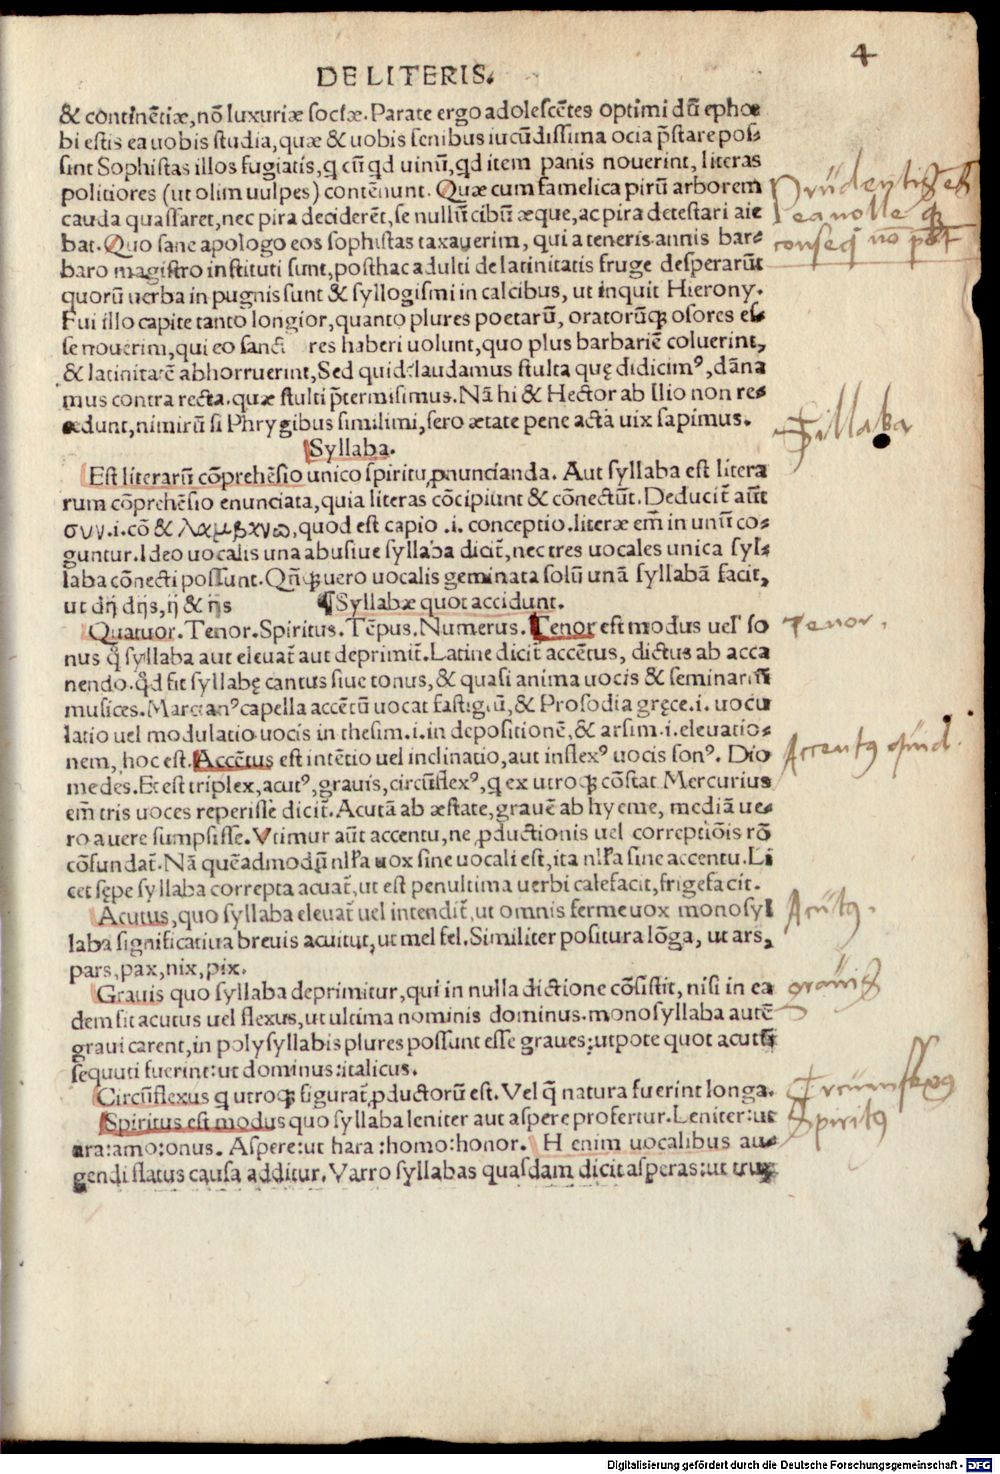 4
DE LITERIS.
& continētiæ, nō luxuriæ sociæ. Parate ergo adolescētes optimi dū ephœ
bi estis ea uobis studia, quæ & uobis senibus iucūdissima ocia p̄stare pos-
sint Sophistas illos fugiatis, q cū qd uinū, qd item panis nouerint, literas
politiores (ut olim uulpes) contēnunt. Quæ cum famelica pirū arborem
cauda quassaret, nec pira deciderēt, se nullū cibū æque, ac pira detestari aie
bat. Quo sane apologo eos sophistas taxauerim, qui a teneris annis bar-
baro magistro instituti sunt, posthac adulti de latinitatis fruge desperarūt
quorū uerba in pugnis sunt & syllogismi in calcibus, ut inquit Hierony.
Fui illo capite tanto longior, quanto plures poetarū, oratorūqȝ osores es-
se nouerim, qui eo sancti res haberi uolunt, quo plus barbariē coluerint,
& latinitatē abhorruerint, Sed quid laudamus stulta quę didicimꝰ, dāna
mus contra recta. quæ stulti p̄termisimus. Nā hi & Hector ab Ilio non re-
edunt, nimirū si Phrygibus similimi, sero ætate pene acta uix sapimus.
Syllaba.
Est literarū cōprehēsio unico spiritu ꝓnuncianda. Aut syllaba est litera
rum cōprehēsio enunciata, quia literas cōcipiunt & cōnectūt. Deducit̄ aūt
συν .i. cō & λαμβανω, quod est capio .i. conceptio. literæ em̄ in unū co-
guntur. Ideo uocalis una abusiue syllaba dicit̄, nec tres uocales unica syl-
laba cōnecti possunt. Qn̄qȝ uero uocalis geminata solū unā syllabā facit,
ut dij dijs, ij & ijs ¶ Syllabæ quot accidunt.
Quatuor. Tenor. Spiritus. Tēpus. Numerus. Tenor est modus uel so
nus q̊ syllaba aut eleuat̄ aut deprimit̄. Latine dicit̄ accētus, dictus ab acca
nendo. q̊d fit syllabę cantus siue tonus, & quasi anima uocis & seminariū
musices. Marcianꝰ capella accētū uocat fastigiū, & Prosodia gręce .i. uocu
latio uel modulatio uocis in thesim .i. in depositionē, & arsim .i. eleuatio-
nem, hoc est. Accētus est intētio uel inclinatio, aut inflexꝰ uocis sonꝰ. Dio
medes. Et est triplex, acutꝰ, grauis, circūflexꝰ, q ex utroqȝ cōstat Mercurius
em̄ tris uoces reperisse dicit̄. Acutā ab æstate, grauē ab hyeme, mediā ue-
ro a uere sumpsisse. Vtimur aūt accentu, ne ꝓductionis uel correptiōis rō
cōfundat̄. Nā quēadmodū nl̄l̄a uox sine uocali est, ita nl̄l̄a sine accentu. Li
cet sępe syllaba correpta acuat̄, ut est penultima uerbi calefacit, frigefacit.
Acutus, quo syllaba eleuat̄ uel intendit̄, ut omnis ferme uox monosyl
laba significatiua breuis acuitur, ut mel fel. Similiter positura lōga, ut ars,
pars, pax, nix, pix.
Grauis quo syllaba deprimitur, qui in nulla dictione cōsistit, nisi in ea
dem sit acutus uel flexus, ut ultima nominis dominus. monosyllaba autē
graui carent, in polysyllabis plures possunt esse graues: utpote quot acutū
sequuti fuerint: ut dominus: italicus.
Circūflexus q utroqȝ figurat̄ ꝓductorū est. Vel q̄ natura fuerint longa.
Spiritus est modus quo syllaba leniter aut aspere profertur. Leniter: ut
ara: amo: onus. Aspere: ut hara: homo: honor. H enim uocalibus au-
gendi flatus causa additur. Varro syllabas quasdam dicit asperas: ut trux
Sillaba
Tenor.
Accentꝰ quid.
Acutꝰ.
grauis
Circumflexꝰ
Spiritꝰ
Digitalisierung gefördert durch die Deutsche Forschungsgemeinschaft - DFG